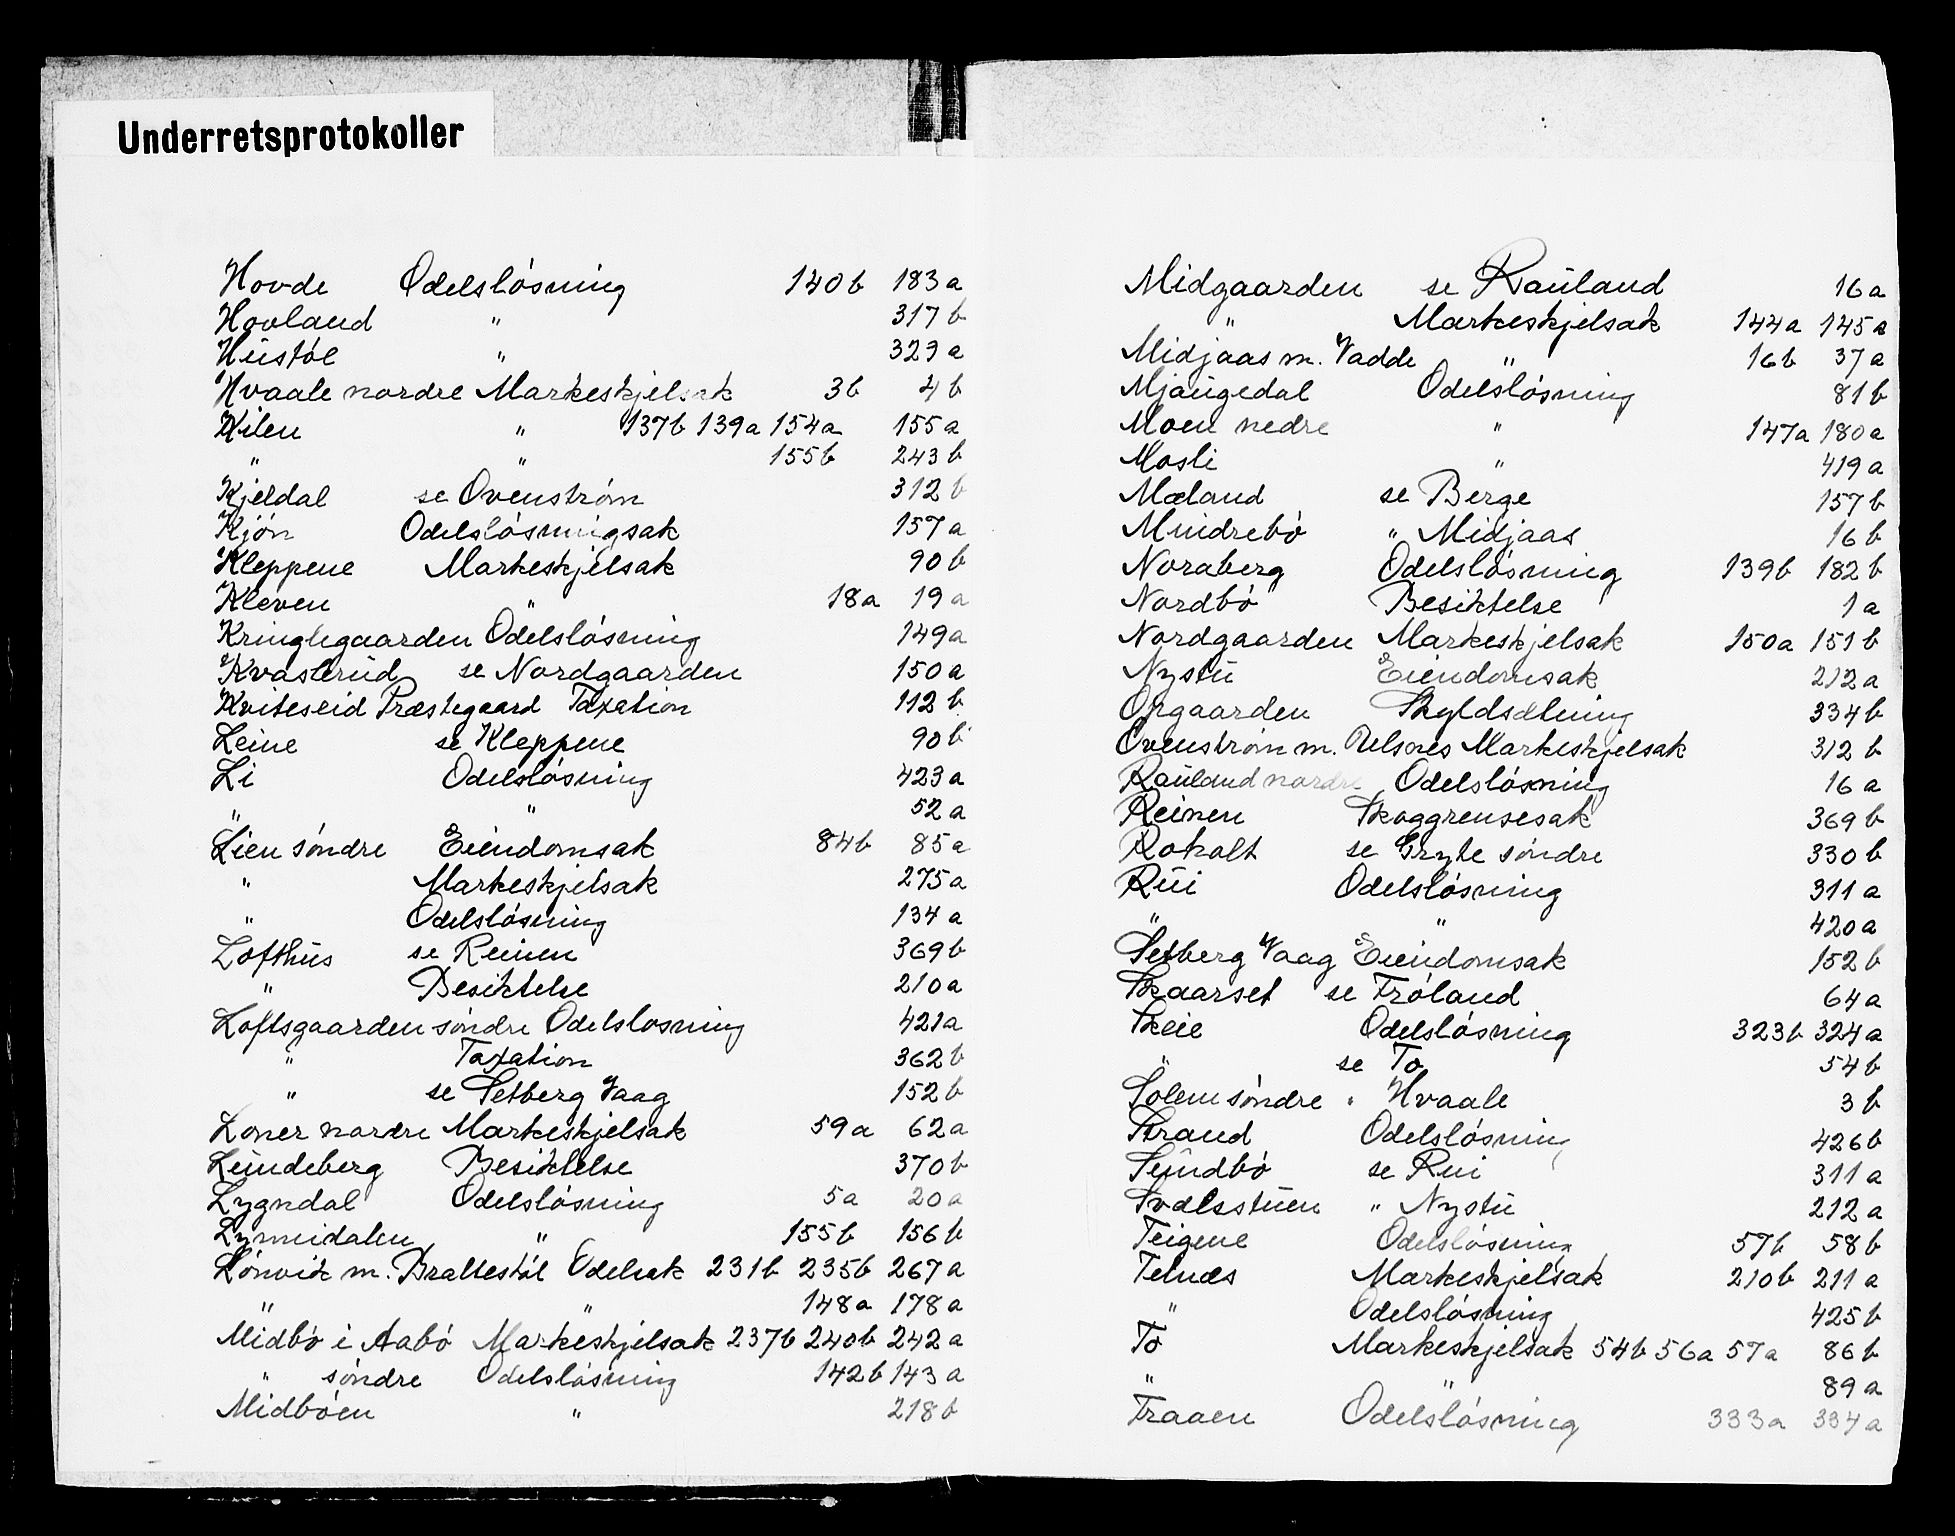 Underretsprotokoller
Hovde Odelslösning 140b 183a
Hovland " 317b
Hüstöl " 329a
Hvaale nordre Markeskjelsak 3b 4b
Kilen " 137b 139a 154a 155a
" " 155b 243b
Kjeldal se Ovenström 312b
Kjön Odelslösningsak 157a
Kleppene Markeskjelsak 90b
Kleven " 18a 19a
Kringlegaarden Odelslösning 149a
Kvasterüd se Nordgaarden 150a
Kviteseid Præstegaard Taxation 112b
Leine se Kleppene 90b
Li Odelslösning 423a
" " 52a
Lien söndre Eiendomsak 84b 85a
" Markeskjelsak 275a
" Odelslösning 134a
Lofthüs se Reinen 369b
" Besiktelse 210a
Loftsgaarden söndre Odelslosning 421a
" Taxation 362b
" se Setberg Vaag 152b
Loner nordre Markeskjelsak 59a 62a
Lündeberg Besiktelse 370b
Lygndal Odelslösning 5a 20a
Lynnidalen " 155b 156b
Lönvik m. Brattestöl Odelsak 231b 235b 267a
" " 148a 178a
Midbö i Aabö Markeskjelsak 237b 240b 242a
" söndre Odelslösning 142b 143a
Midböen " 218b
Midgaarden se Raüland 16a
" Markeskjelsak 144a 145a
Midjaas m. Vadde " 16b 37a
Mjaugedal Odelslösning 81b
Moen nedre " 147a 180a
Mosli " 419a
Mæland se Berge 157b
Mindrebö " Midjaas 16b
Noraberg Odelslösning 139b 182b
Nordbö Besiktelse 1a
Nordgaarden Markeskjelsak 150a 151b
Nystü Eiendomsak 212a
Opgaarden Skyldsætning 334b
Ovenström m. Markeskjelsak 312b
Raüland nordre Odelslösning 16a
Reinen Skoggrensesak 369b
Rokolt se Gryte söndre 330b
Rüi Odelslösning 311a
" " 420a
Setberg Vaag Eiendomsak 152b
Skaarset se Fröland 64a
Skeie Odelslösning 323b 324a
" se To 54b
Solem söndre " Hvaale 3b
Strand Odelslösning 426b
Sündbö se Rui 311a
Svalsstüen " Nystü 212a
Teigene Odelslösning 57b 58b
Telnæs Markeskjelsak 210b 211a
" Odelslösning 425b
To Markeskjelsak 54b 56a 57a 86b
" " 89a
Traaen Odelslösning 333a 334a